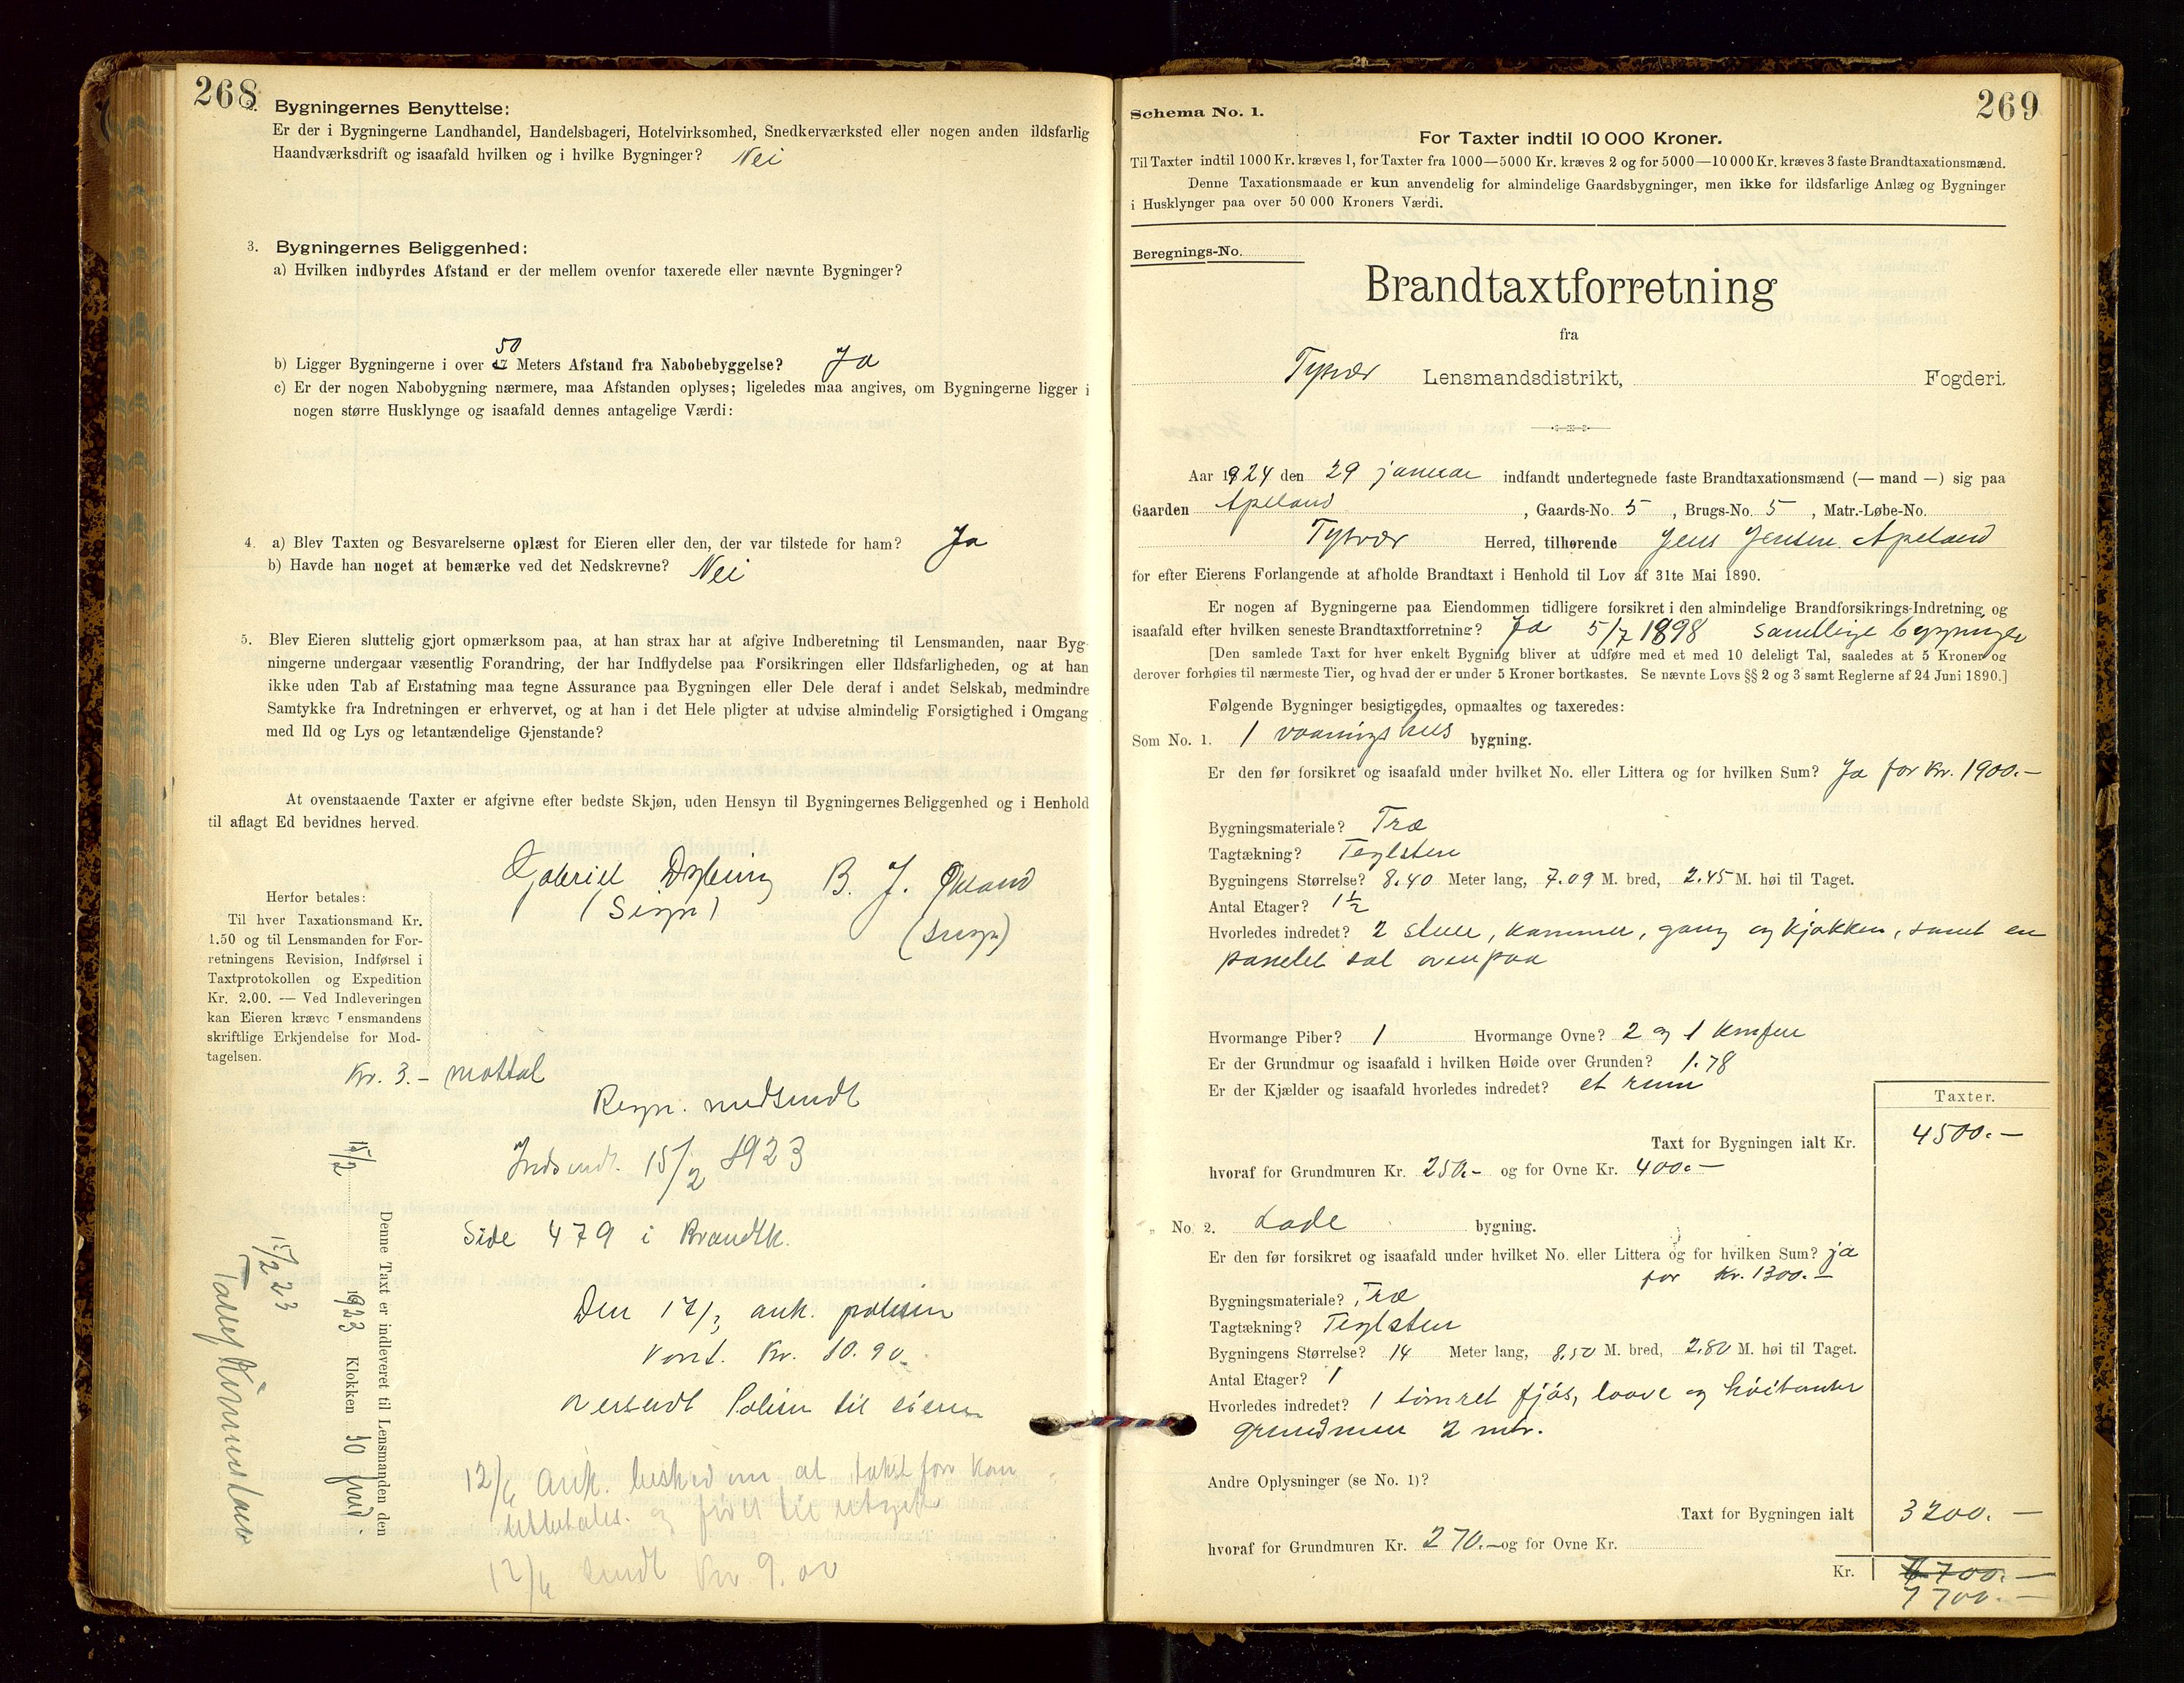 268
2. Bygningernes Benyttelse:
Er der i Bygningerne Landhandel, Handelsbageri, Hotelvirksomhed, Snedkerværksted eller nogen anden ildsfarlig
Haandværksdrift og isaafald hvilken og i hvilke Bygninger? Nei
3. Bygningernes Beliggenhed:
a) Hvilken indbyrdes Afstand er der mellem ovenfor taxerede eller nævnte Bygninger?
50
b) Ligger Bygningerne i over Meters Afstand fra Nabobebyggelse? Ja
c) Er der nogen Nabobygning nærmere, maa Afstanden oplyses; ligeledes maa angives, om Bygningerne ligger i
nogen større Husklynge og isaafald dennes antagelige Værdi:
4. a) Blev Taxten og Besvarelserne oplæst for Eieren eller den, der var tilstede for ham? Ja
b) Havde han noget at bemærke ved det Nedskrevne? Nei
5. Blev Eieren sluttelig gjort opmærksom paa, at han strax har at afgive Indberetning til Lensmanden, naar Byg-
ningerne undergaar væsentlig Forandring, der har Indflydelse paa Forsikringen eller Ildsfarligheden, og at han
ikke uden Tab af Erstatning maa tegne Assurance paa Bygningen eller Dele deraf i andet Selskab, medmindre
Samtykke fra Indretningen er erhvervet, og at han i det Hele pligter at udvise almindelig Forsigtighed i Omgang
med Ild og Lys og letantændelige Gjenstande?
At ovenstaaende Taxter er afgivne efter bedste Skjøn, uden Hensyn til Bygningernes Beliggenhed og i Henhold
til aflagt Ed bevidnes herved.
Gabriel Dybing B. J. Økland
(Sign) (sign)
Herfor betales:
Til hver Taxationsmand Kr.
1.50 og til Lensmanden for For-
retningens Revision, Indførsel i
Taxtprotokollen og Expedition
Kr. 2.00. — Ved Indleveringen
kan Eieren kræve Lensmandens
skriftlige Erkjendelse for Mod-
tagelsen.
Kr. 3.- mottat
Regn. medsendt
Indsendt. 15/2 1923
Side 479 i Brandtk.
Den 17/3 ank. polisen
Kont. Kr. 10.90.
oversendt Polisen til eieren
12/6 ank. beskjed om at takst forr. kan
tilbetales. og
12/6 sendt Kr. 9.00
Denne Taxt er indleveret til Lensmanden den
15/2 1923 Klokken 10 fmd.
15/2 23
269
Schema No. 1.
For Taxter indtil 10 000 Kroner.
Til Taxter indtil 1000 Kr. kræves 1, for Taxter fra 1000—5000 Kr. kræves 2 og for 5000—10 000 Kr. kræves 3 faste Brandtaxationsmænd.
Denne Taxationsmaade er kun anvendelig for almindelige Gaardsbygninger, men ikke for ildsfarlige Anlæg og Bygninger
i Husklynger paa over 50 000 Kroners Værdi.
Beregnings-No.
Brandtaxtforretning
fra
Tysvær Lensmandsdistrikt, Fogderi.
Aar 1924 den 29 januar indfandt undertegnede faste Brandtaxationsmænd (— mand —) sig paa
Gaarden Apeland, Gaards-No. 5, Brugs-No. 5, Matr.-Løbe-No.
Tysvær Herred, tilhørende Jens Jensen Apeland
for efter Eierens Forlangende at afholde Brandtaxt i Henhold til Lov af 31te Mai 1890.
Er nogen af Bygningerne paa Eiendommen tidligere forsikret i den almindelige Brandforsikrings-Indretning, og
isaafald efter hvilken seneste Brandtaxtforretning? Ja 5/7 1898 samtlige bygninger
[Den samlede Taxt for hver enkelt Bygning bliver at udføre med et med 10 deleligt Tal, saaledes at 5 Kroner og
derover forhøies til nærmeste Tier, og hvad der er under 5 Kroner bortkastes. Se nævnte Lovs §§ 2 og 3 samt Reglerne af 24 Juni 1890.]
Følgende Bygninger besigtigedes, opmaaltes og taxeredes:
Som No. 1. 1 vaaningshus bygning.
Er den før forsikret og isaafald under hvilket No. eller Littera og for hvilken Sum? Ja for kr. 1900.-
Bygningsmateriale? Træ
Tagtækning? Teglsten
Bygningens Størrelse? 8.40 Meter lang, 7.09 M. bred, 2.45 M. høi til Taget.
Antal Etager? 1½
Hvorledes indredet? 2 stuer, kammer, gang og kjøkken, samt en
panelet sal ovenpaa
Hvormange Piber? 1 Hvormange Ovne? 2 og 1 komfur
Er der Grundmur og isaafald i hvilken Høide over Grunden? 1.78
Er der Kjælder og isaafald hvorledes indredet? et rum
Taxter.
Taxt for Bygningen ialt Kr. 4500.-
hvoraf for Grundmuren Kr. 250.- og for Ovne Kr. 400.-
" No. 2. Lade bygning.
Er den før forsikret og isaafald under hvilket No. eller Littera og for hvilken Sum? ja
for Kr. 1300.-
Bygningsmateriale? Træ
Tagtækning? Teglsten
Bygningens Størrelse? 14 Meter lang, 8.50 M. bred, 2.80 M. høi til Taget.
Antal Etager? 1
Hvorledes indredet? 1 tømret fjøs, loave og
grundmur 2 mtr.
Andre Oplysninger (se No. 1)?
Taxt for Bygningen ialt 3200.-
hvoraf for Grundmuren Kr. 270.- og for Ovne Kr.
Kr. 6700.-
7700.-